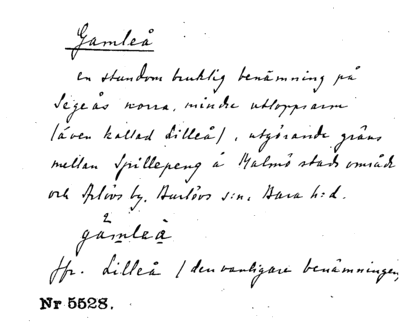 Gamleå
en stundom bruklig benämning på
Segeås norra, mindre utloppsarm
(även kallad Lilleå), utgörande gräns
mellan Spillepeng å Malmö stads område
och Arlövs by, Burlövs s:n, Bara h:d.
gamleå
jfr. Lilleå (den vanligare benämningen)
Nr 5528.